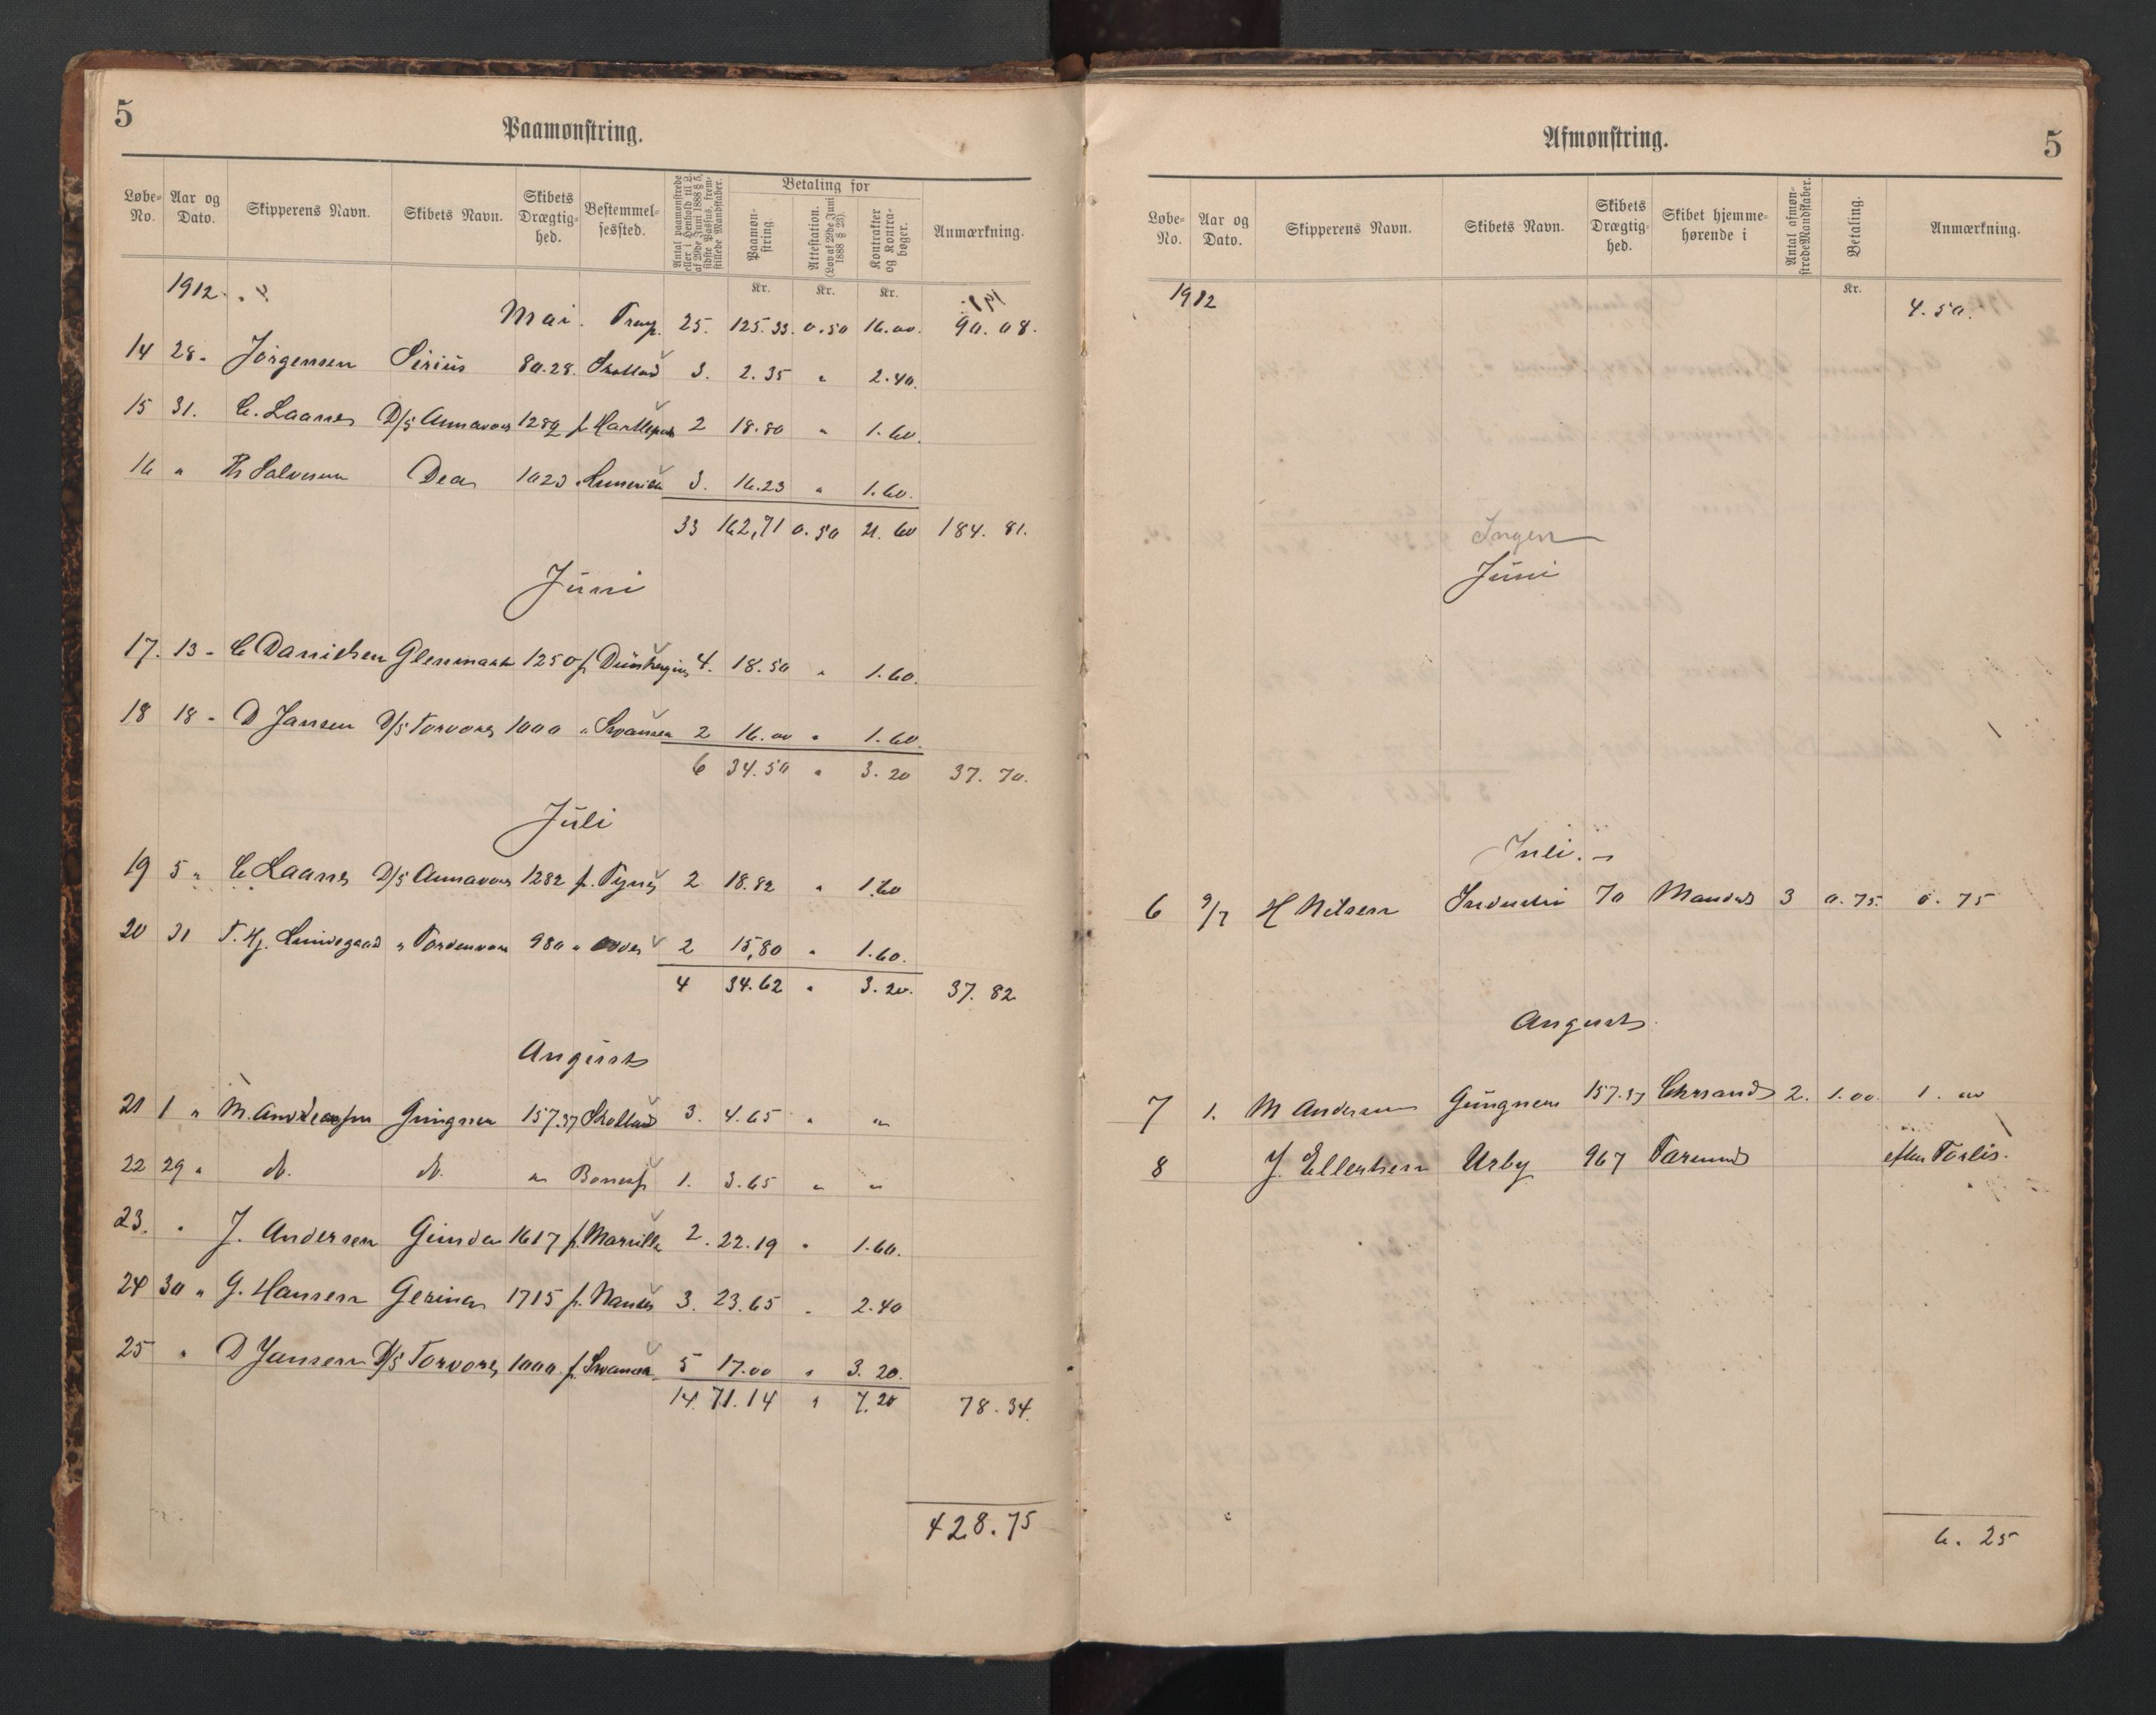 5
Paamønstring.
Løbe-No. Aar og Dato. Skipperens Navn. Skibets Navn. Skibets Drægtighed. Bestemmelsessted. Antal paamønstrede eller i Henhold til 2. af 29de Juni 1888 § 5, sidste Passus, fremstillede Mandskaber. Betaling for Paamønstring. Attestation. (Lov af 29de Juni 1888 § 23). Kontrakter og Kontrabøger. Anmærkning.
Kr. Kr. Kr.
1912
Mai. Transp. 25. 125.33. 0.50 16.00. 90.08.
14 28 " Jörgensen Sirius 80.28. Skotland 3. 2.35 " 2.40.
15 31. C. Laanes D/S Annavore 1282 f. Hartlepool 2 18.80 " 1.60.
16 " Dea 1023 3. 16.23 " 1.60.
33 162,71 0.50 21.60 184.81.
Juni
17. 13 " C Danielsen Glenmark 1250 f. 4. 18.50 " 1.60.
18 18 " D Jansen D/S Torvore 1000 " Swansea 2 16.00 " 1.60.
6 34.50 " 3.20 37.70.
Juli
19 5 " C Laanes D/S Annavore 1282 f. Tyne 2 18.82 " 1.60
20 31 T. Hj. Lundegaard " Tordenvore 980 " 2 15,80 " 1.60.
4 34.62 " 3.20. 37.82
August
21 1 " M. Andreassen Gungner 157.37 Skotland 3. 4.65 " "
22 29 " do. do. " Boness 1. 3.65 " "
23. " J. Andersen Gunda 1617 f. 2. 22.19 " 1.60.
24 30 " G. Hansen Gerina 1715 f. 3. 23.65 " 2.40
25 " D Jansen D/S Torvore 1000. f. Swansea 5 17.00 " 3.20.
14. 71.14 " 7.20 78.34.
428.75
Afmønstring.
5
Løbe-No. Aar og Dato. Skipperens Navn. Skibets Navn. Skibets Drægtighed. Skibet hjemmehørende i Antal afmønstrede Mandskaber. Betaling. Anmærkning.
Kr.
1912 4.50.
Ingen
Juni
Juli.
6 9/7 H Nilsen Industri 70 Mandal 3 0.75. 0.75
August
7 1. M Andersen Gungner 157.37 Chrsand 2. 1.00. 1.00
8 J. Ellertsen Urby 967 Farsund efter Forlis.
6.25